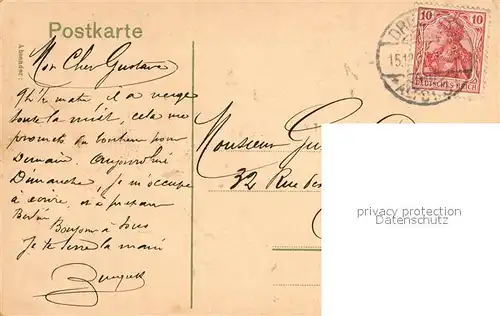 Postkarte
Absender:
Mon Cher Gustave
9h½ matin, il a neigé
toute la nuit, cela me
promets du
Demain. Aujourd'hui
Dimanche, je m'occupe
à écrire, et à préparer
Berlin
Bonjour à tous
Je te serre la main
Monsieur Gu
32 Rue des
10 10
DEUTSCHES REICH
DRE
15.12
ALTST
privacy protection
Datenschutz